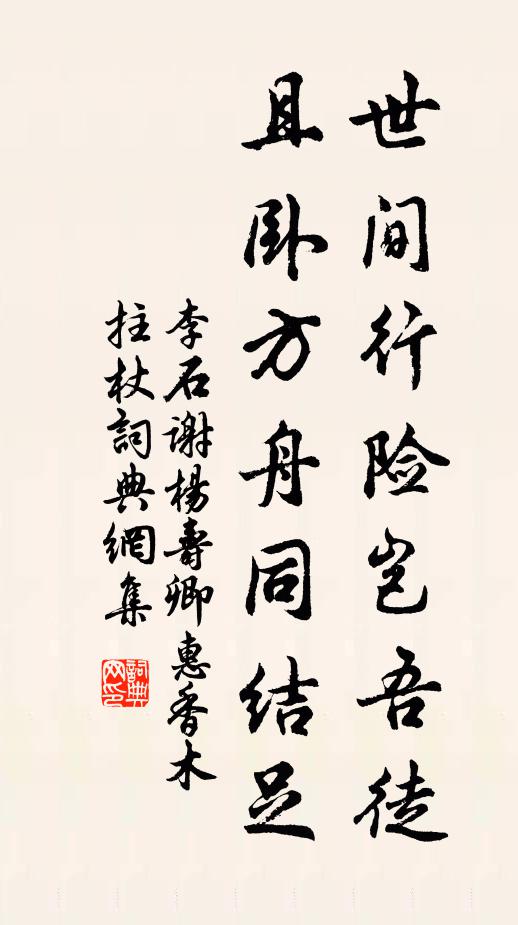 世间行险岂吾徒
且卧方舟同结足
李石谢杨寿卿惠香木
拄杖詞典網集
詞典网印